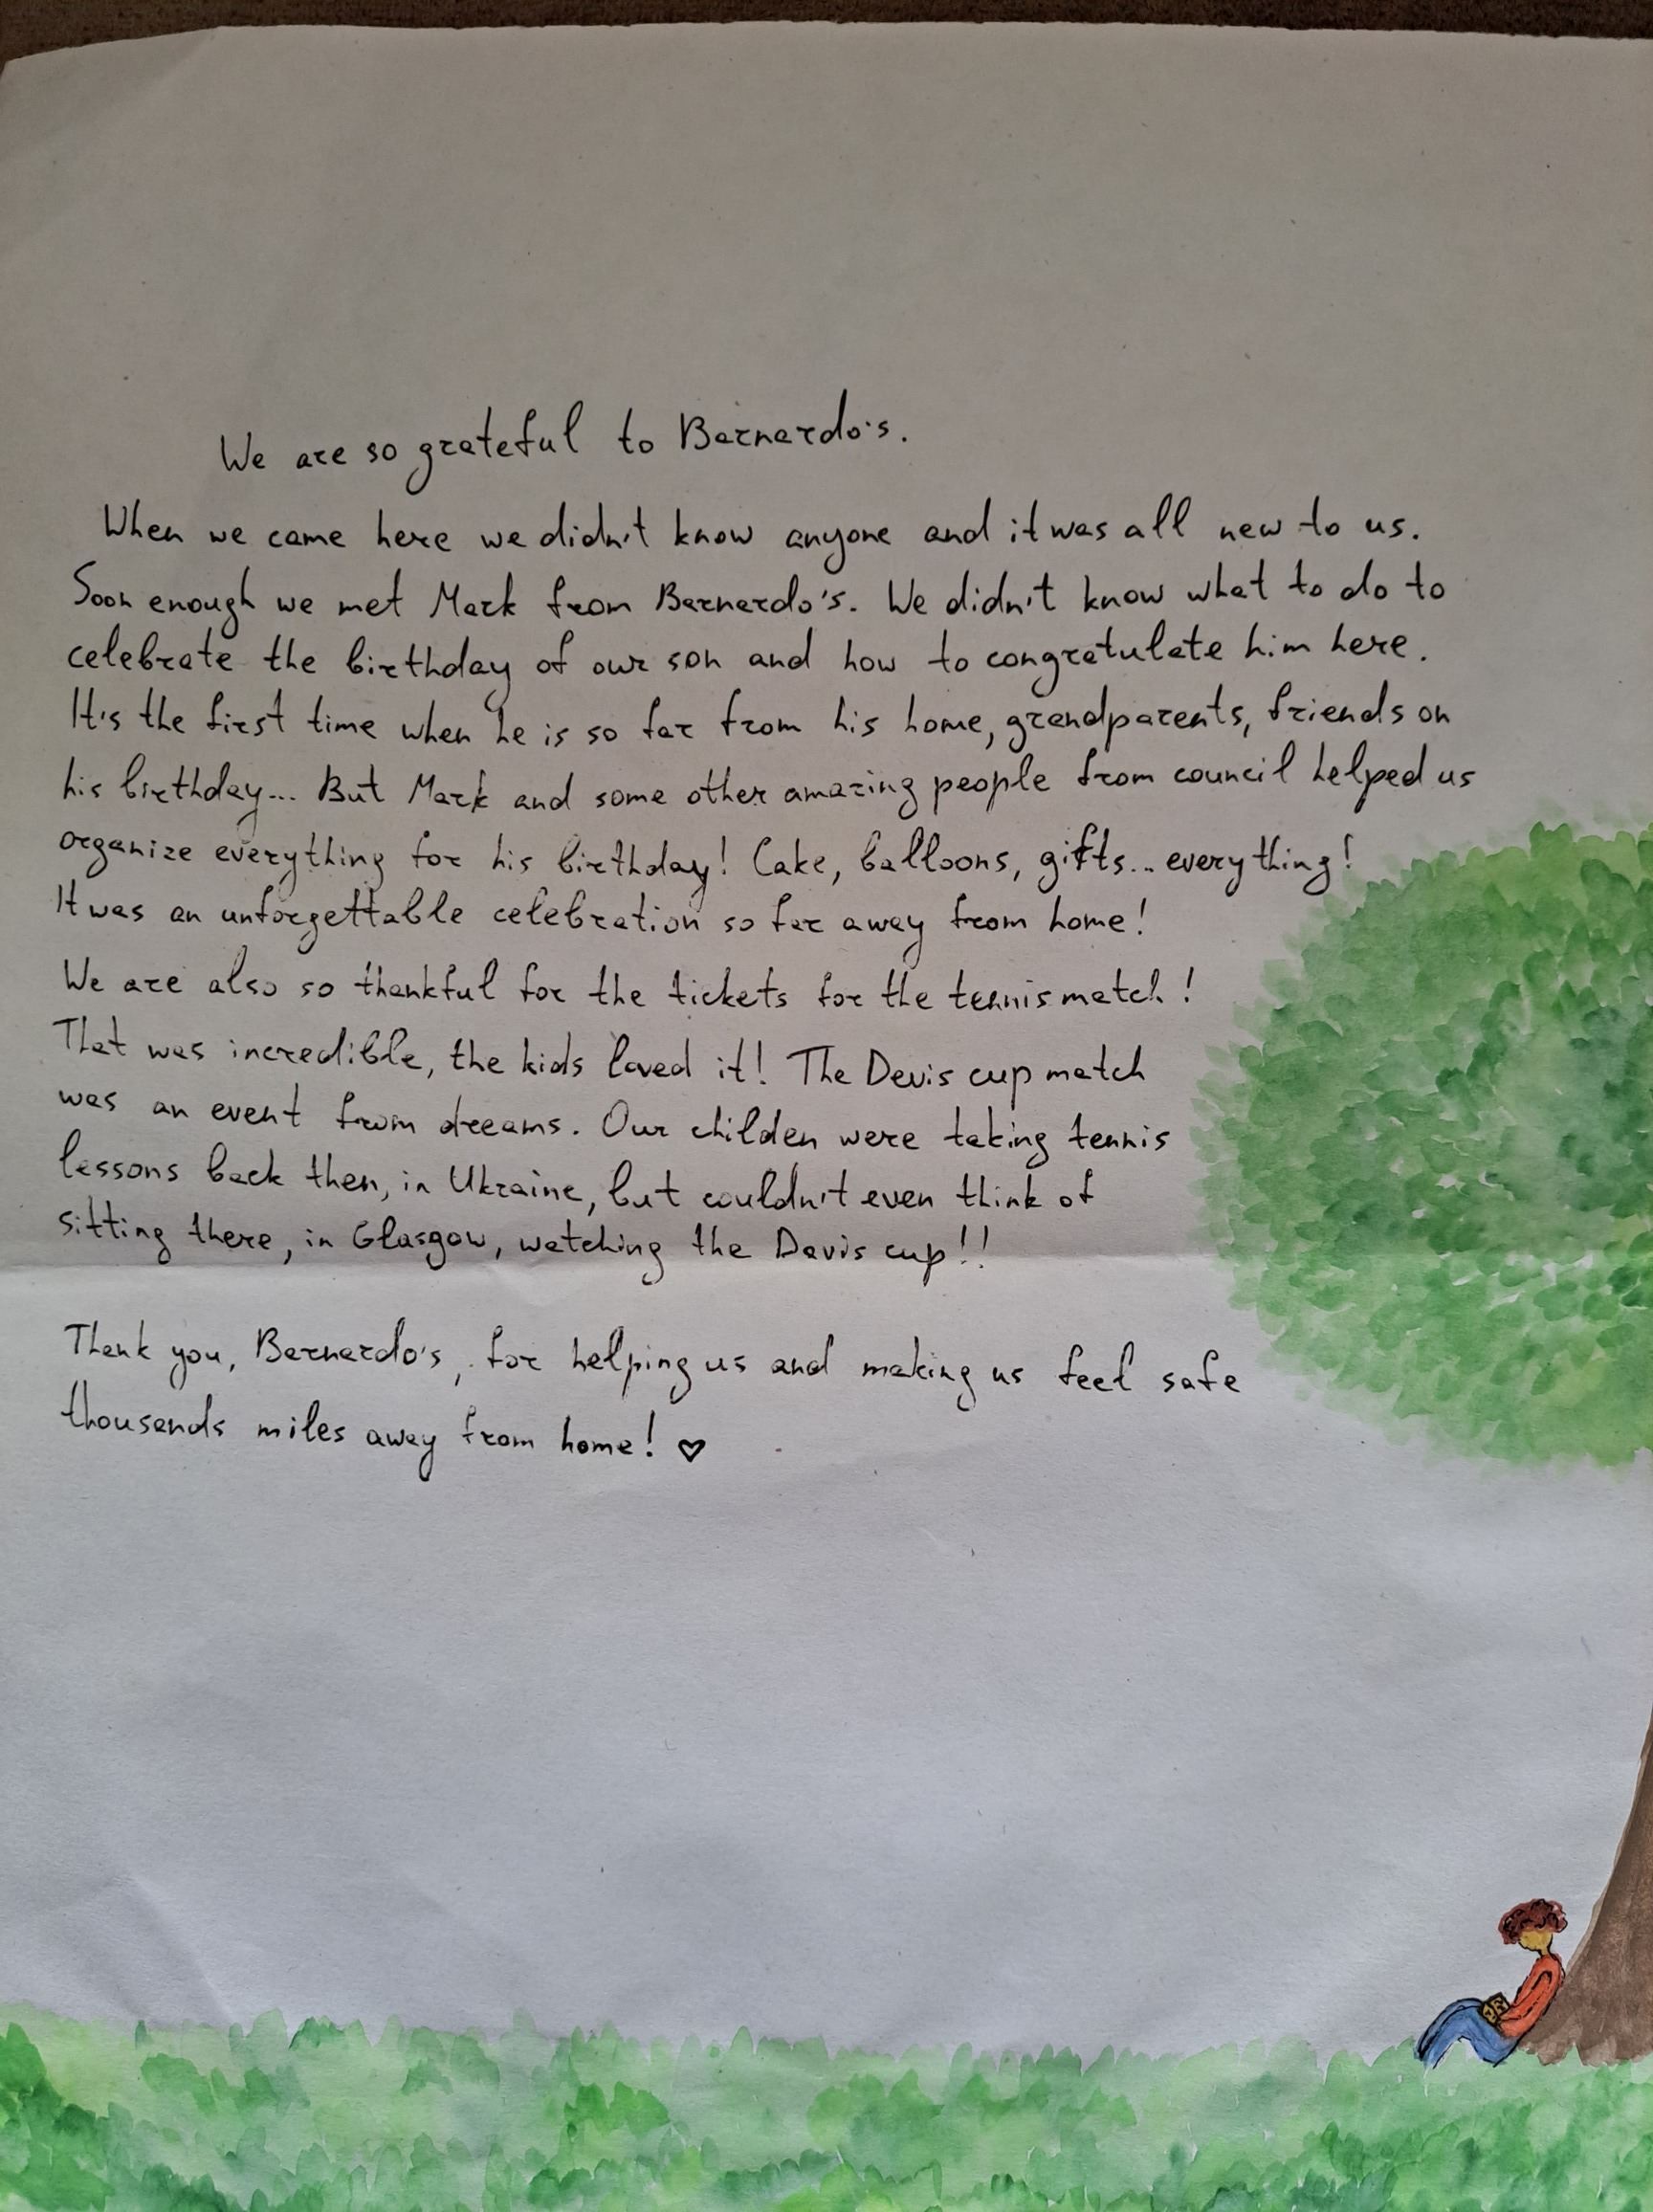 We are so grateful to Barnardo's.
When we came here we didn't know anyone and it was all new to us.
Soon enough we met Mark from Barnardo's. We didn't know what to do to
celebrate the birthday of our son and how to congratulate him here.
It's the first time when he is so far from his home, grandparents, friends on
his birthday... But Mark and some other amazing people from council helped us
organize everything for his birthday! Cake, balloons, gifts... everything!
It was an unforgettable celebration so far away from home!
We are also so thankful for the tickets for the tennis match!
That was incredible, the kids loved it! The Davis cup match
was an event from dreams. Our childen were taking tennis
lessons back then, in Ukraine, but couldn't even think of
sitting there, in Glasgow, watching the Davis cup!!
Thank you, Barnardo's, for helping us and making us feel safe
thousands miles away from home! ♡